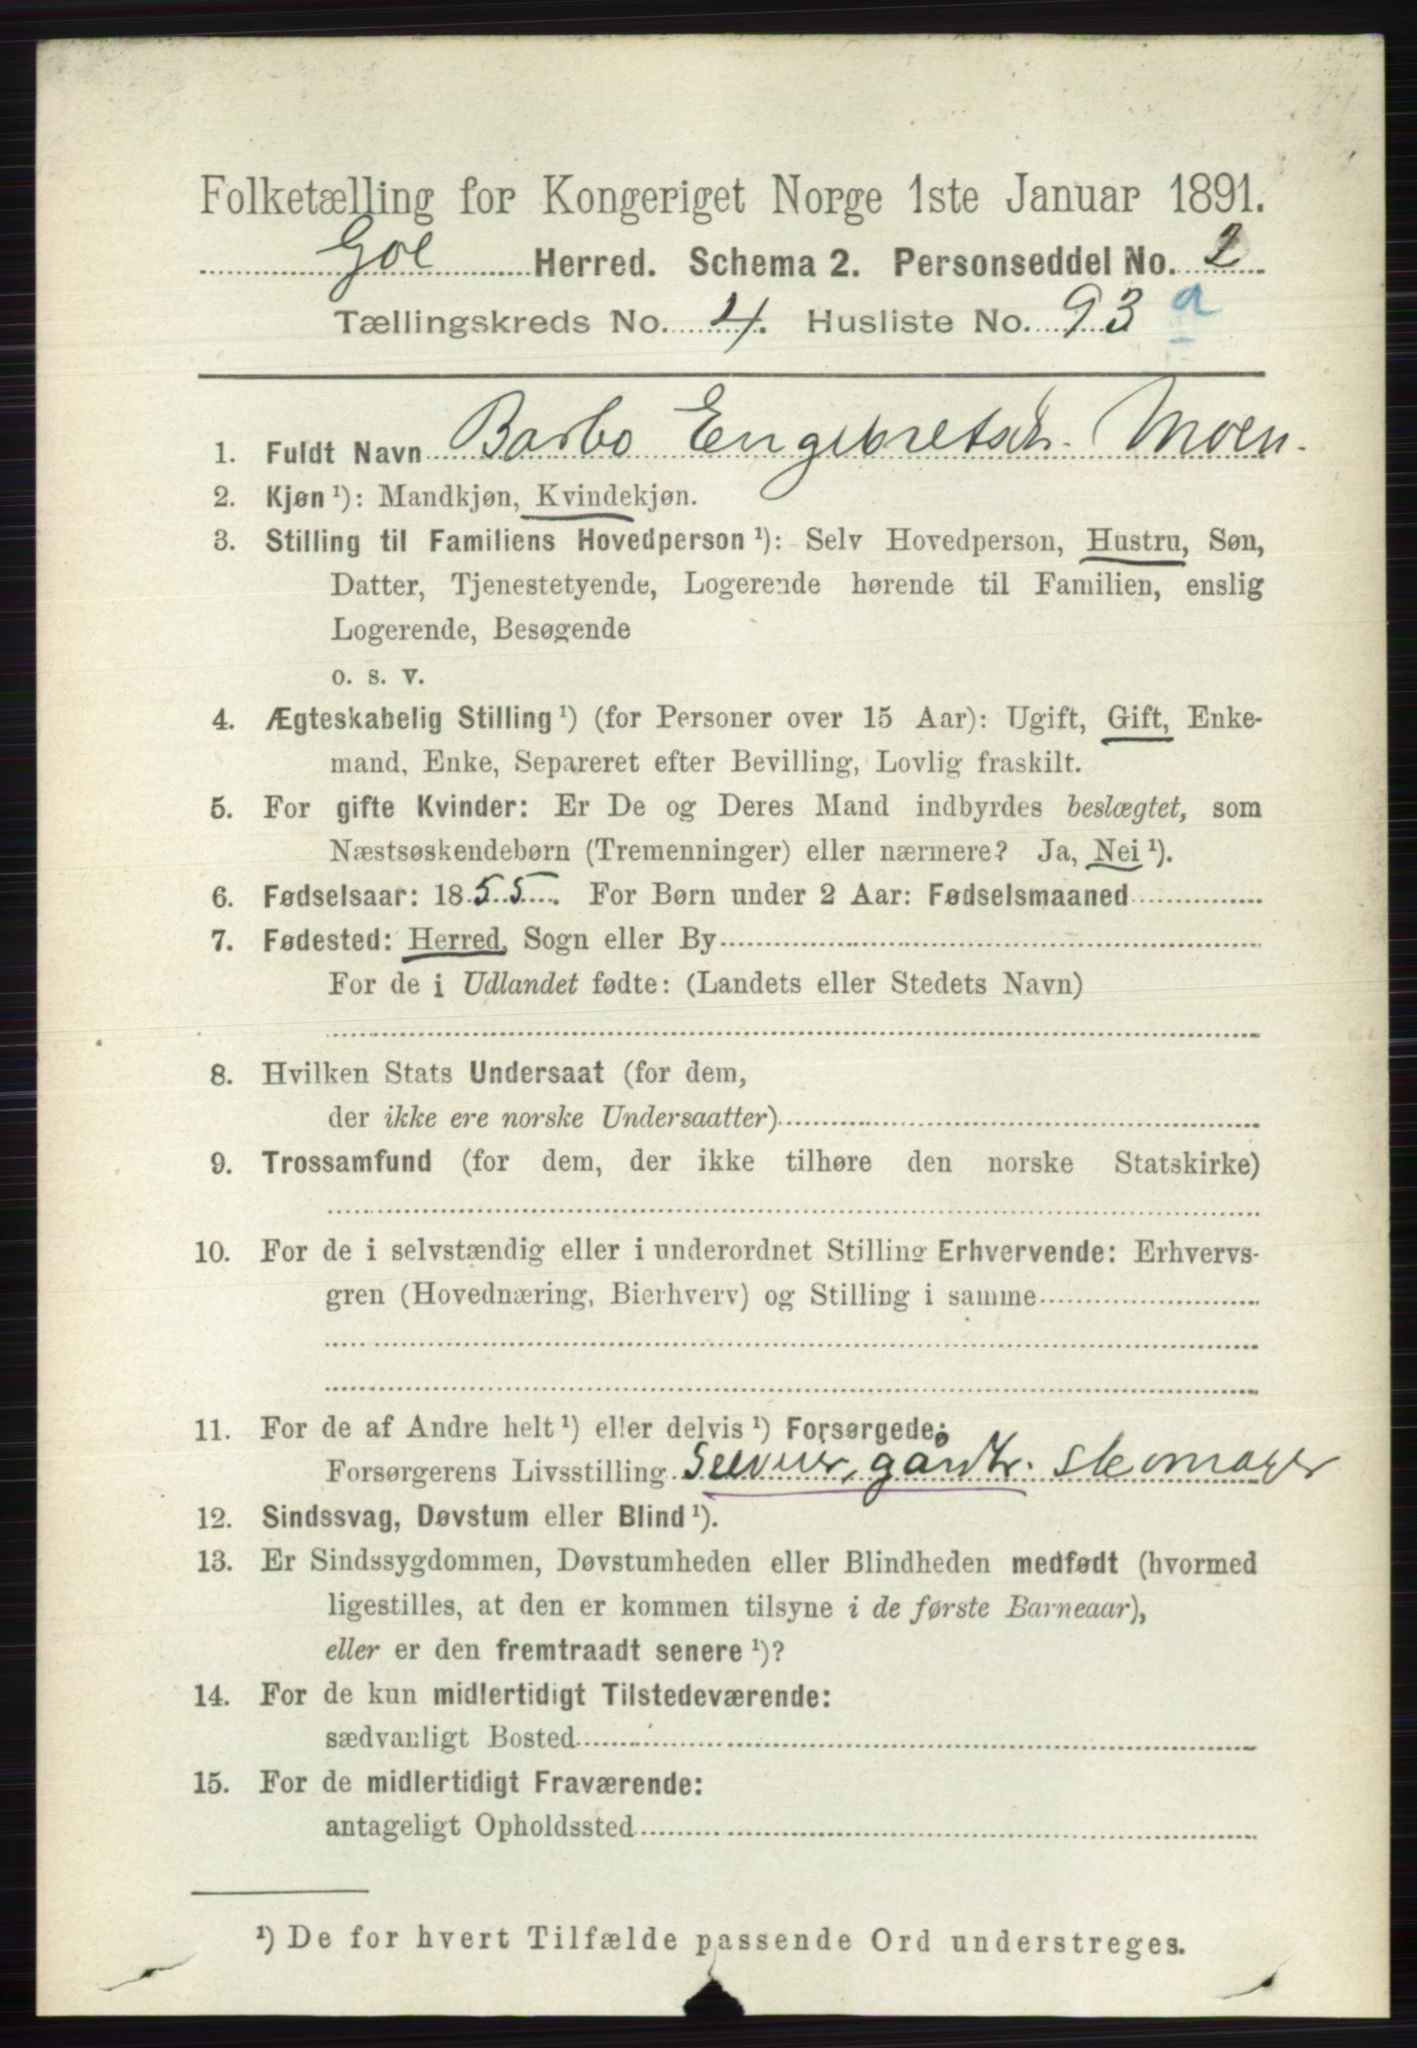 Folketælling for Kongeriget Norge 1ste Januar 1891.
Gol Herred. Schema 2. Personseddel No. 2
Tællingskreds No. 4. Husliste No. 93 a
1. Fuldt Navn Barbo Engebretsdr. Moen.
2. Kjøn ¹): Mandkjøn, Kvindekjøn.
3. Stilling til Familiens Hovedperson ¹): Selv Hovedperson, Hustru, Søn,
Datter, Tjenestetyende, Logerende hørende til Familien, enslig
Logerende, Besøgende
o. s. v.
4. Ægteskabelig Stilling ¹) (for Personer over 15 Aar): Ugift, Gift, Enke-
mand, Enke, Separeret efter Bevilling, Lovlig fraskilt.
5. For gifte Kvinder: Er De og Deres Mand indbyrdes beslægtet, som
Næstsøskendebørn (Tremenninger) eller nærmere? Ja, Nei ¹).
6. Fødselsaar: 1855. For Børn under 2 Aar: Fødselsmaaned
7. Fødested: Herred, Sogn eller By
For de i Udlandet fødte: (Landets eller Stedets Navn)
8. Hvilken Stats Undersaat (for dem,
der ikke ere norske Undersaatter)
9. Trossamfund (for dem, der ikke tilhøre den norske Statskirke)
10. For de i selvstændig eller i underordnet Stilling Erhvervende: Erhvervs-
gren (Hovednæring, Bierhverv) og Stilling i samme
11. For de af Andre helt ¹) eller delvis ¹) Forsørgede:
Forsørgerens Livsstilling gårdbr. skomager
12. Sindssvag, Døvstum eller Blind ¹).
13. Er Sindssygdommen, Døvstumheden eller Blindheden medfødt (hvormed
ligestilles, at den er kommen tilsyne i de første Barneaar),
eller er den fremtraadt senere ¹)?
14. For de kun midlertidigt Tilstedeværende:
sædvanligt Bosted
15. For de midlertidigt Fraværende:
antageligt Opholdssted
¹) De for hvert Tilfælde passende Ord understreges.